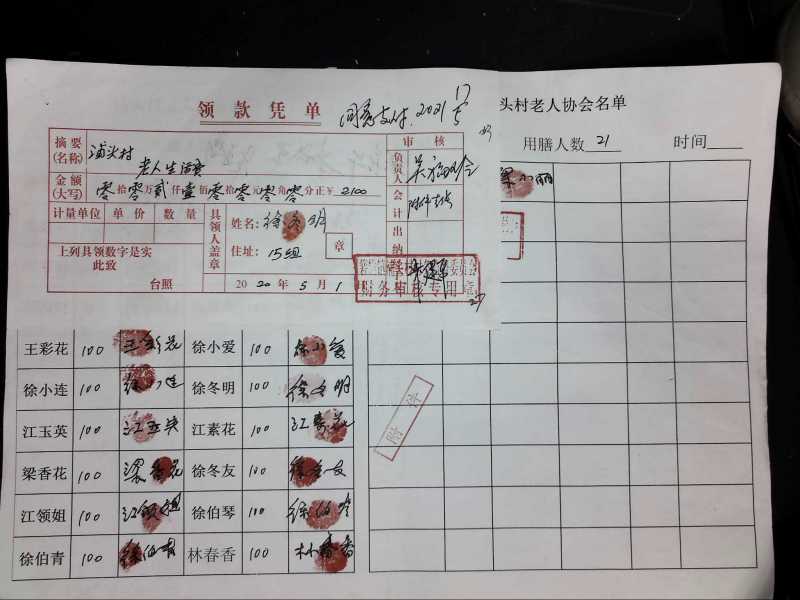 领款凭单
同意支付. 2021 17/5
摘要(名称) 浦头村 老人生活费
审核
金额(大写) 零拾零万贰仟壹佰零拾零元零角零分正¥ 2100
负责人
会计
出纳
计量单位 单价 数量
具领人盖章
姓名: 徐冬明
住址: 15组
章
上列具领数字是实
此致
台照
2020年5月1
财务审核专用章
头村老人协会名单
用膳人数 21 时间
梁小丽
王彩花 100 王彩花 徐小爱 100 徐小爱
徐小连 100 徐小连 徐冬明 100 徐冬明
江玉英 100 江玉英 江素花 100 江素花
梁香花 100 梁香花 徐冬友 100 徐冬友
江领姐 100 江领姐 徐伯琴 100 徐伯琴
徐伯青 100 徐伯青 林春香 100 林春香
附件